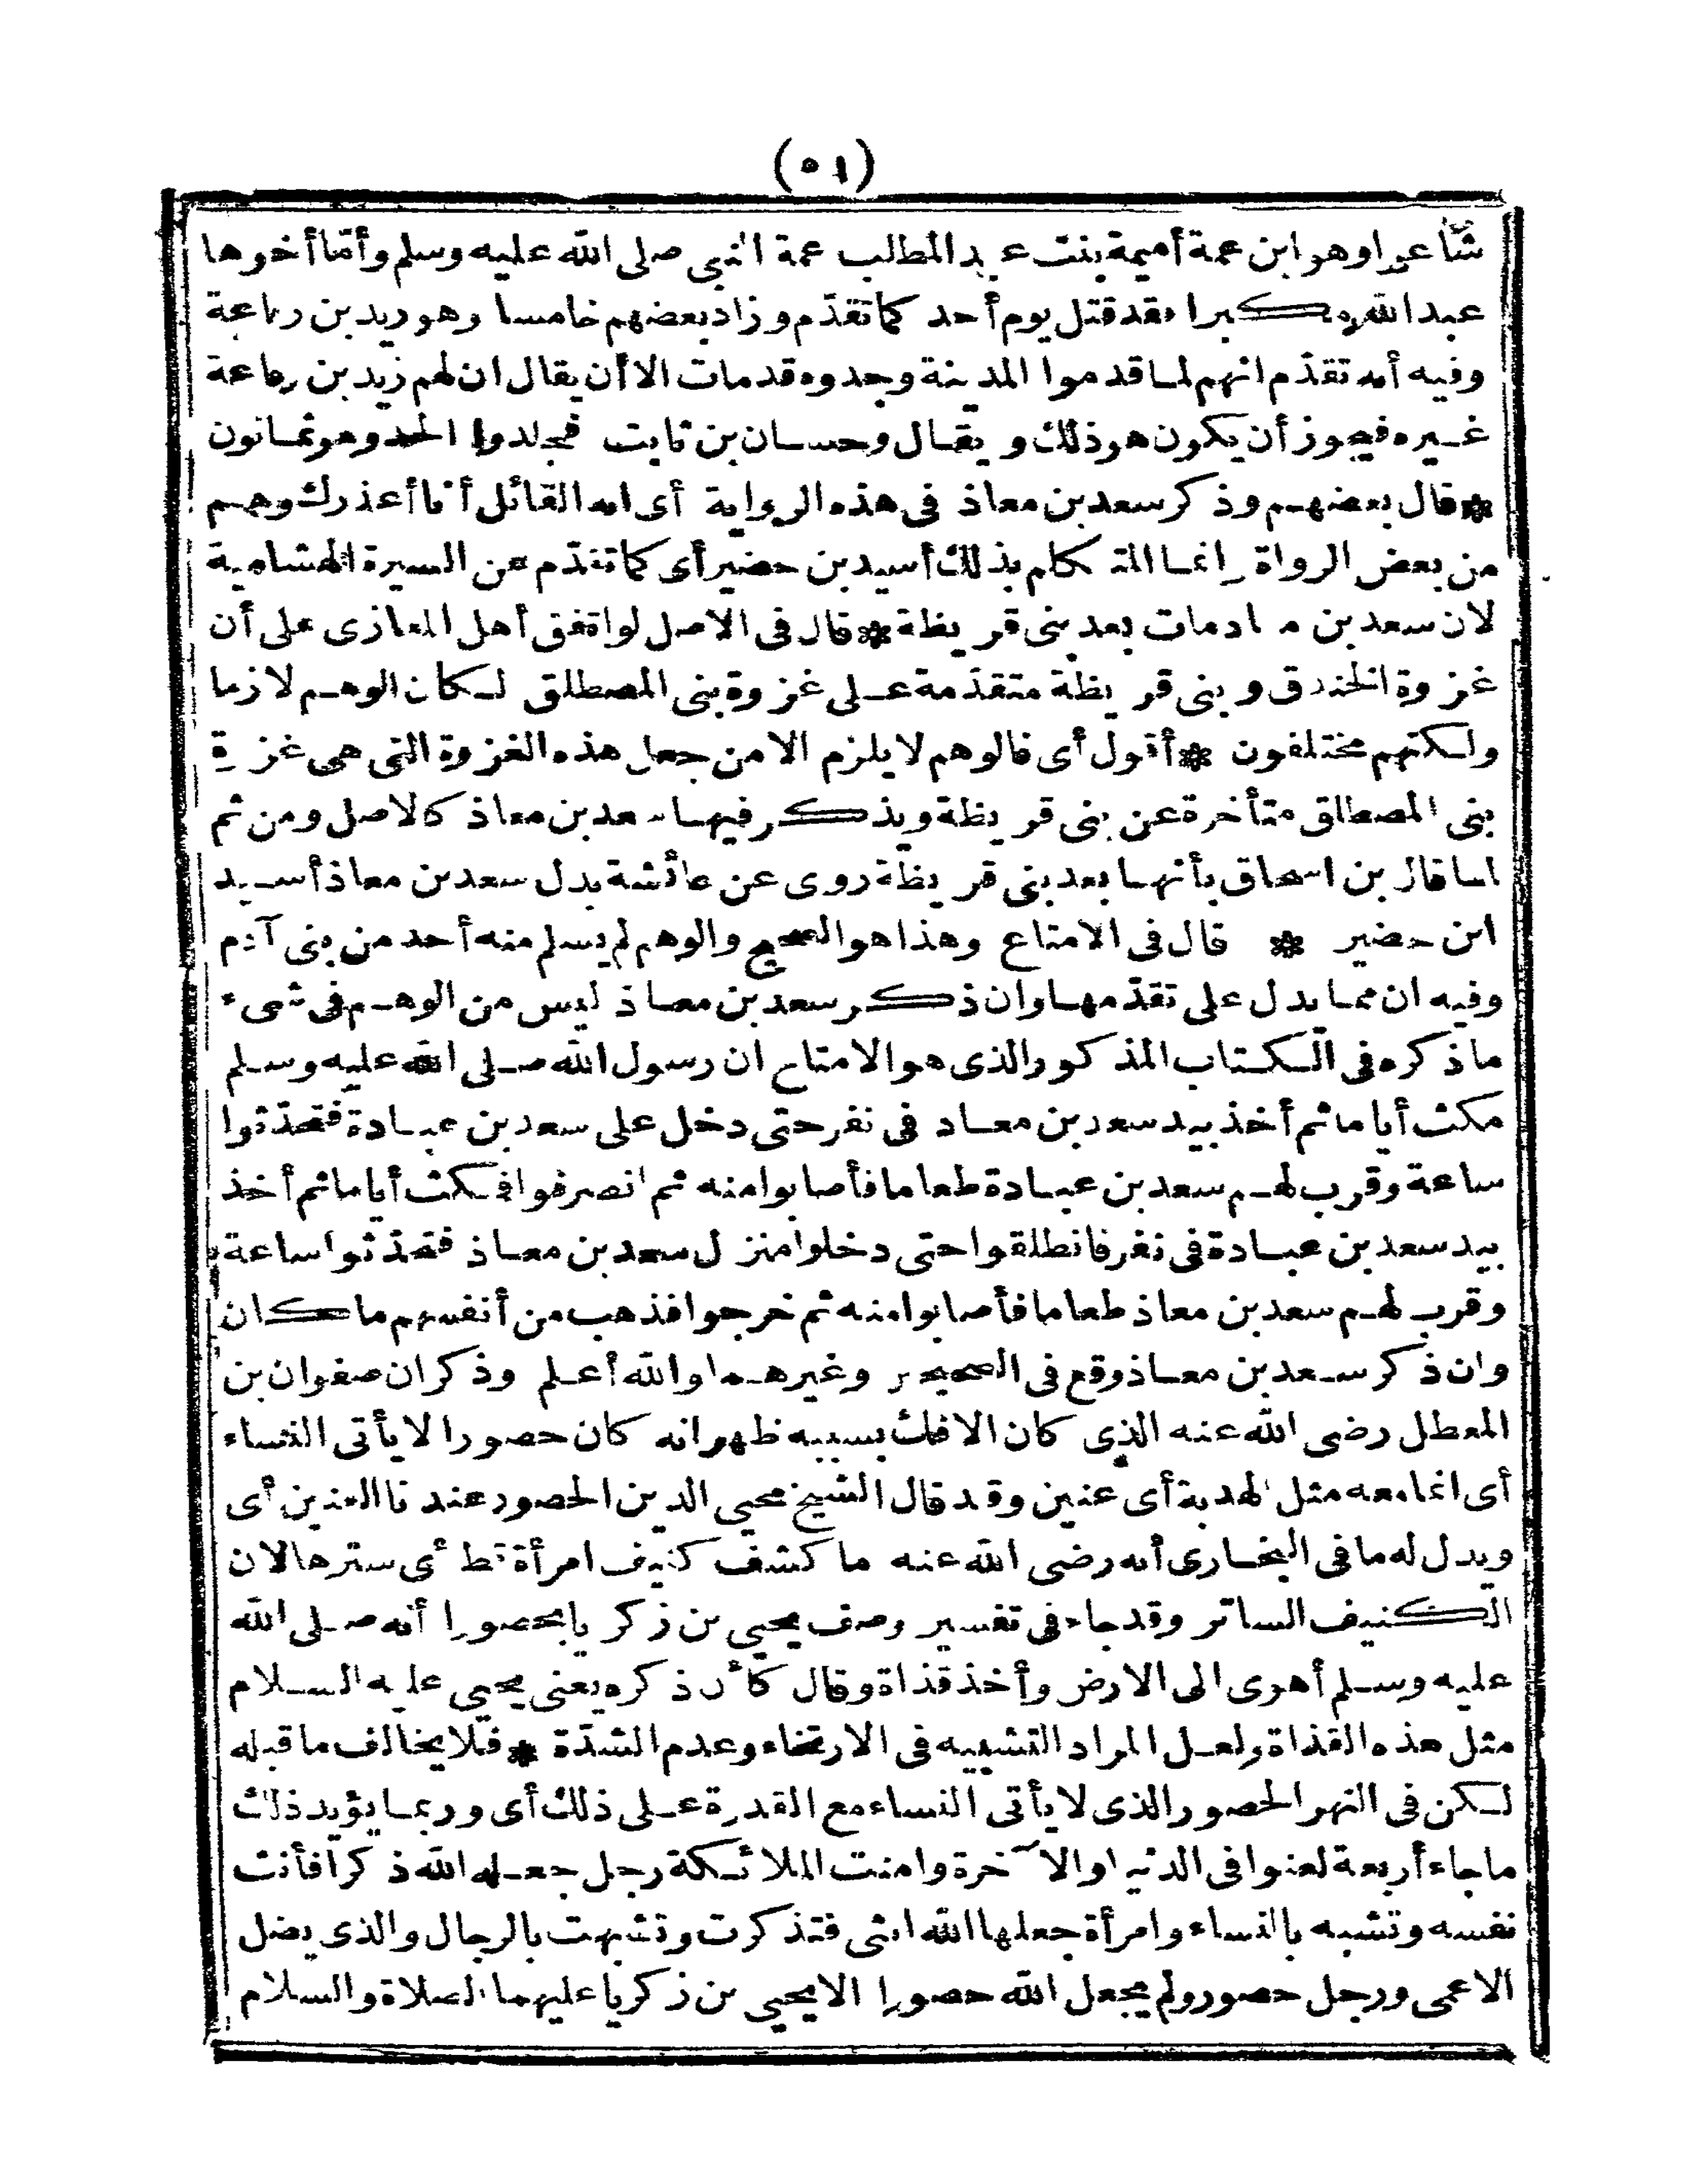 (٥١)
شاعرا وهو ابن عمة أميمة بنت عبد المطلب عمة النبى صلى الله عليه وسلم وأما أخوها
عبد الله مكبرا فقد قتل يوم أحد كما تقدّم وزاد بعضهم خامسا وهو زيد بن رفاعة
وفيه أنه تقدّم انهم لما قدموا المدينة وجدوه قد مات الا أن يقال ان لهم زيد بن رفاعة
غيره فيجوز أن يكون هو ذلك ويقال وحسان بن ثابت فجلدوا الحد وهو ثمانون
* قال بعضهم وذكر سعد بن معاذ فى هذه الرواية أى انه القائل أنا أعذرك وهم
من بعض الرواة وانما المتكلم بذلك أسيد بن حضير أى كما تقدّم عن السيرة الهشامية
لان سعد بن معاذ مات بعد بنى قريظة * قال فى الاصل لو اتفق أهل المغازى على أن
غزوة الخندق وبنى قريظة متقدّمة على غزوة بنى المصطلق لكان الوهم لازما
ولكنهم مختلفون * أقول أى فالوهم لا يلزم الا من جعل هذه الغزوة التى هى غزوة
بنى المصطلق متأخرة عن بنى قريظة ويذكر فيها سعد بن معاذ كالاصل ومن ثم
لما قال بن اسحاق بأنها بعد بنى قريظة روى عن عائشة بدل سعد بن معاذ أسيد
ابن حضير * قال فى الامتاع وهذا هو الصحيح والوهم لم يسلم منه أحد من بنى آدم
وفيه ان مما يدل على تقدّمها وان ذكر سعد بن معاذ ليس من الوهم فى شىء
ما ذكره فى الكتاب المذكور الذى هو الامتاع ان رسول الله صلى الله عليه وسلم
مكث أياما ثم أخذ بيد سعد بن معاذ فى نفر حتى دخل على سعد بن عبادة فتحدّثوا
ساعة وقرب لهم سعد بن عبادة طعاما فأصابوا منه ثم انصرفوا فمكث أياما ثم أخذ
بيد سعد بن عبادة فى نفر فانطلقوا حتى دخلوا منزل سعد بن معاذ فتحدّثوا ساعة
وقرب لهم سعد بن معاذ طعاما فأصابوا منه ثم خرجوا فذهب من أنفسهم ما كان
وان ذكر سعد بن معاذ وقع فى الصحيحين وغيرهما والله أعلم وذكر ان صفوان بن
المعطل رضى الله عنه الذى كان الافك بسببه ظهر انه كان حصورا لا يأتى النساء
أى انما معه مثل الهدبة أى عنين وقد قال الشيخ محيى الدين الحصور عندنا العنين أى
ويدل له ما فى البخارى أنه رضى الله عنه ما كشف كنيف امرأة قط أى سترها لان
الكنيف الساتر وقد جاء فى تفسير وصف يحيى بن زكريا بحصورا أنه صلى الله
عليه وسلم أهوى الى الارض وأخذ قذاة وقال كأن ذكره يعنى يحيى عليه السلام
مثل هذه القذاة ولعل المراد التشبيه فى الارتخاء وعدم الشدّة * فلا يخالف ما قبله
لكن فى النهر الحصور الذى لا يأتى النساء مع القدرة على ذلك أى وربما يؤيد ذلك
ما جاء أربعة لعنوا فى الدنيا والآخرة وامنت الملائكة رجل جعله الله ذكرا فأنث
نفسه وتشبه بالنساء وامرأة جعلها الله انثى فتذكرت وتشبهت بالرجال والذى يضل
الاعمى ورجل حصور ولم يجعل الله حصورا الا يحيى بن زكريا عليهما الصلاة والسلام